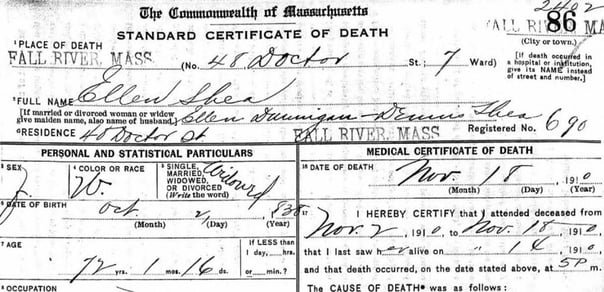 The Commonwealth of Massachusetts
2402
STANDARD CERTIFICATE OF DEATH
ALL RI 86 MA
(City or town.)
¹PLACE OF DEATH
FALL RIVER, MASS. (No. 48 Doctor St.; 7 Ward)
[If death occurred in a hospital or institution, give its NAME instead of street and number.]
²FULL NAME Ellen Shea
[If married or divorced woman or widow give maiden name, also name of husband.] Ellen Dunnigan - Dennis Shea
Registered No. 690
RESIDENCE 48 Doctor St FALL RIVER, MASS
PERSONAL AND STATISTICAL PARTICULARS
³SEX
F.
⁴COLOR OR RACE
W.
⁵SINGLE, MARRIED, WIDOWED, OR DIVORCED (Write the word) Widowed
⁶DATE OF BIRTH
Oct 2 1838
(Month) (Day) (Year)
⁷AGE
72 yrs. 1 mos. 16 ds.
If LESS than 1 day, hrs. or min.?
⁸OCCUPATION
MEDICAL CERTIFICATE OF DEATH
¹⁶DATE OF DEATH
Nov. 18, 1910
(Month) (Day) (Year)
¹⁷ I HEREBY CERTIFY that I attended deceased from
Nov. 2, 1910, to Nov. 18, 1910,
that I last saw her alive on " 14, 1910,
and that death occurred, on the date stated above, at 5P m.
The CAUSE OF DEATH* was as follows: